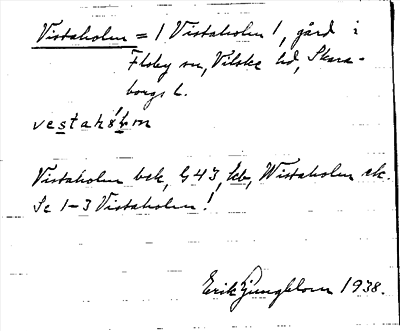 Vistaholm = 1 Vistaholm 1, gård i
Floby sn, Vilske hd, Skara-
borgs l.
vestahòlm
Vistaholm bsk, G 43, kb, Wistaholm ek.
Se 1-3 Vistaholm!
Erik Ljungblom 1938.